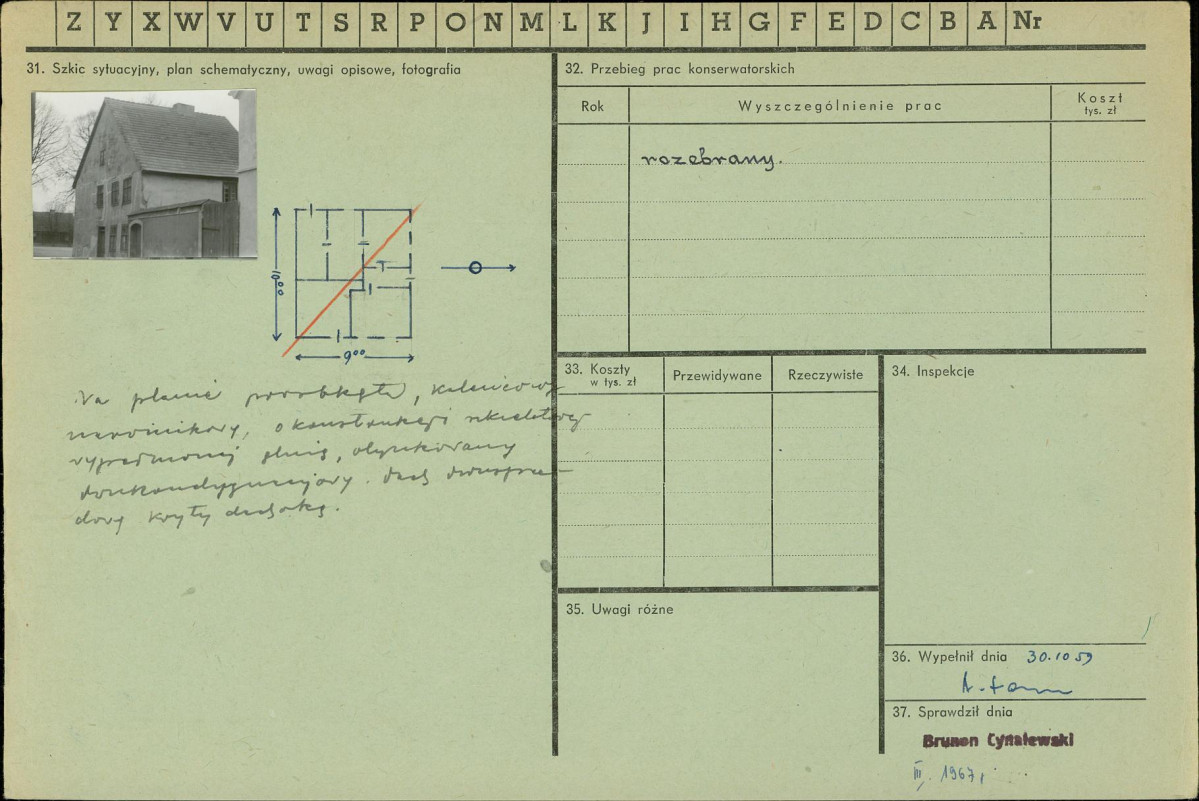 Z Y X W V U T S R P O N M L K J I H G F E D C B A Nr
31. Szkic sytuacyjny, plan schematyczny, uwagi opisowe, fotografia
10⁰⁰
9⁰⁰
Na planie, kalenicowy
, o konstrukcji szkieletowej
, otynkowany
dwukondygnacyjowy. Dach dwuspa-
dowy kryty dachówką.
32. Przebieg prac konserwatorskich
Rok
Wyszczególnienie prac
Koszt
tys. zł
rozebrany.
33. Koszty
w tys. zł
Przewidywane
Rzeczywiste
34. Inspekcje
35. Uwagi różne
36. Wypełnił dnia 30.10 59
37. Sprawdził dnia
Brunon Cynalewski
III. 1967.